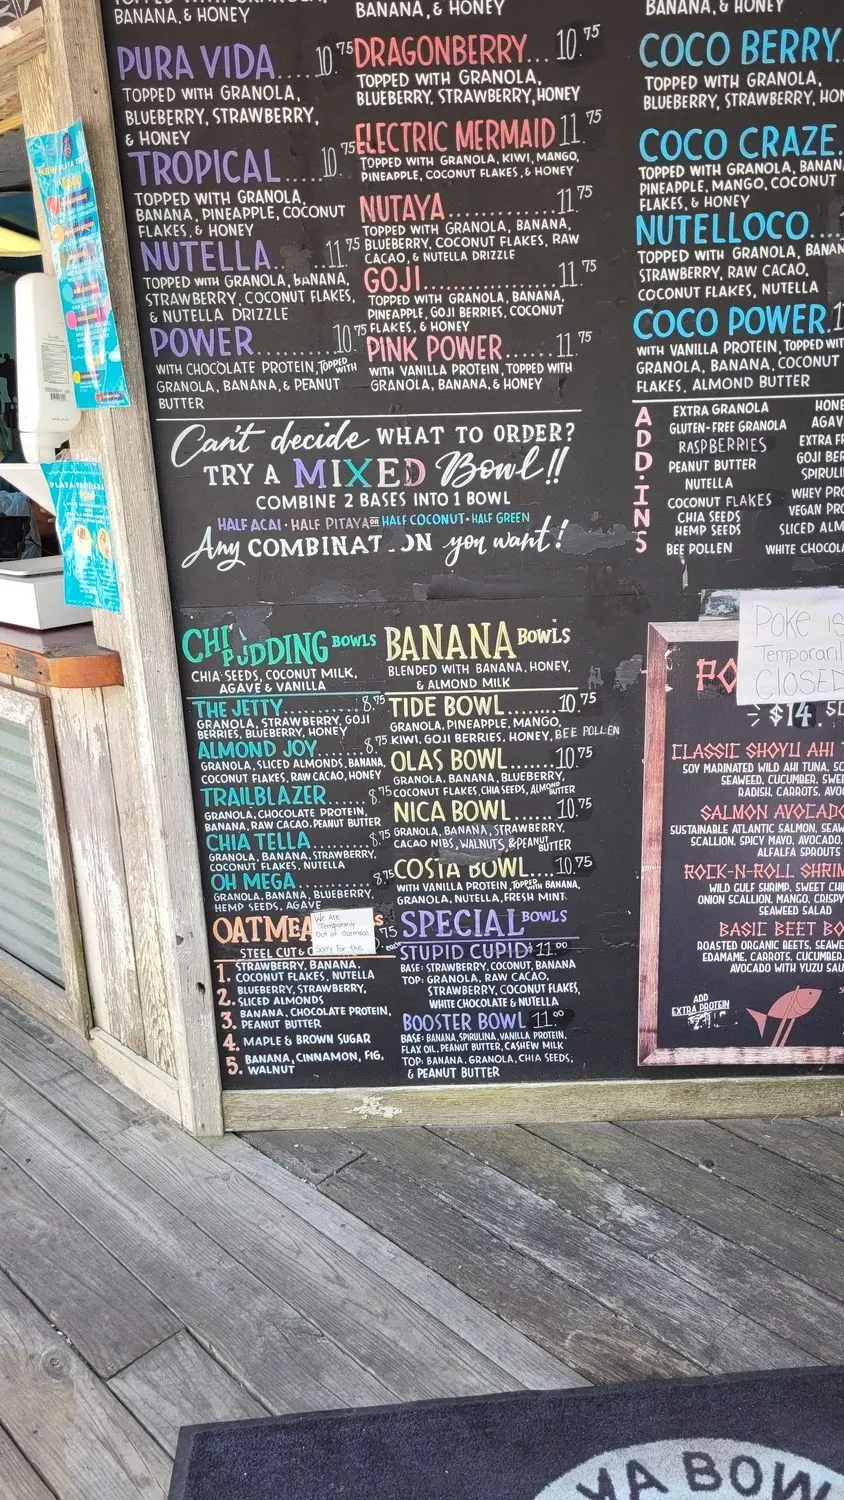 BANANA, & HONEY
PURA VIDA.....10.75
TOPPED WITH GRANOLA,
BLUEBERRY, STRAWBERRY,
& HONEY
TROPICAL.....10.75
TOPPED WITH GRANOLA,
BANANA, PINEAPPLE, COCONUT
FLAKES, & HONEY
NUTELLA...11.75
TOPPED WITH GRANOLA, BANANA,
STRAWBERRY, COCONUT FLAKES,
& NUTELLA DRIZZLE
POWER.........10.75
WITH CHOCOLATE PROTEIN, TOPPED WITH
GRANOLA, BANANA, & PEANUT
BUTTER
BANANA, & HONEY
DRAGONBERRY...10.75
TOPPED WITH GRANOLA,
BLUEBERRY, STRAWBERRY, HONEY
ELECTRIC MERMAID 11.75
TOPPED WITH GRANOLA, KIWI, MANGO,
PINEAPPLE, COCONUT FLAKES, & HONEY
NUTAYA............11.75
TOPPED WITH GRANOLA, BANANA,
BLUEBERRY, COCONUT FLAKES, RAW
CACAO, & NUTELLA DRIZZLE
GOJI................11.75
TOPPED WITH GRANOLA, BANANA,
PINEAPPLE, GOJI BERRIES, COCONUT
FLAKES, & HONEY
PINK POWER......11.75
WITH VANILLA PROTEIN, TOPPED WITH
GRANOLA, BANANA, & HONEY
BANANA, & HONEY
COCO BERRY.
TOPPED WITH GRANOLA,
BLUEBERRY, STRAWBERRY, HON
COCO CRAZE.
TOPPED WITH GRANOLA, BANAN
PINEAPPLE, MANGO, COCONUT
FLAKES, & HONEY
NUTELLOCO..
TOPPED WITH GRANOLA, BANAN
STRAWBERRY, RAW CACAO,
COCONUT FLAKES, NUTELLA
COCO POWER.1
WITH VANILLA PROTEIN, TOPPED WIT
GRANOLA, BANANA, COCONUT
FLAKES, ALMOND BUTTER
Can't decide WHAT TO ORDER?
TRY A MIXED Bowl!!
COMBINE 2 BASES INTO 1 BOWL
HALF ACAI · HALF PITAYA OR HALF COCONUT · HALF GREEN
Any COMBINAT ON you want!
ADD-INS
EXTRA GRANOLA
GLUTEN-FREE GRANOLA
RASPBERRIES
PEANUT BUTTER
NUTELLA
COCONUT FLAKES
CHIA SEEDS
HEMP SEEDS
BEE POLLEN
HONE
AGAV
EXTRA F
GOJI BER
SPIRULI
WHEY PRO
VEGAN PRO
SLICED ALM
WHITE CHOCOLA
CHI PUDDING BOWLS
CHIA SEEDS, COCONUT MILK,
AGAVE & VANILLA
THE JETTY.......8.75
GRANOLA, STRAWBERRY, GOJI
BERRIES, BLUEBERRY, HONEY
ALMOND JOY......8.75
GRANOLA, SLICED ALMONDS, BANANA,
COCONUT FLAKES, RAW CACAO, HONEY
TRAILBLAZER......8.75
GRANOLA, CHOCOLATE PROTEIN,
BANANA, RAW CACAO, PEANUT BUTTER
CHIA TELLA.......8.75
GRANOLA, BANANA, STRAWBERRY,
COCONUT FLAKES, NUTELLA
OH MEGA..........8.75
GRANOLA, BANANA, BLUEBERRY,
HEMP SEEDS, AGAVE
BANANA BOWLS
BLENDED WITH BANANA, HONEY,
& ALMOND MILK
TIDE BOWL.......10.75
GRANOLA, PINEAPPLE, MANGO,
KIWI, GOJI BERRIES, HONEY, BEE POLLEN
OLAS BOWL......10.75
GRANOLA, BANANA, BLUEBERRY,
COCONUT FLAKES, CHIA SEEDS, ALMOND BUTTER
NICA BOWL......10.75
GRANOLA, BANANA, STRAWBERRY,
CACAO NIBS, WALNUTS, & PEANUT BUTTER
COSTA BOWL....10.75
WITH VANILLA PROTEIN, TOPPED WITH BANANA,
GRANOLA, NUTELLA, FRESH MINT
OATMEA .75
We Are
Temporarily
Out of Oatmeal
Sorry For the
STEEL CUT & O
1. STRAWBERRY, BANANA,
COCONUT FLAKES, NUTELLA
2. BLUEBERRY, STRAWBERRY,
SLICED ALMONDS
3. BANANA, CHOCOLATE PROTEIN,
PEANUT BUTTER
4. MAPLE & BROWN SUGAR
5. BANANA, CINNAMON, FIG,
WALNUT
SPECIAL BOWLS
STUPID CUPID 11.00
BASE: STRAWBERRY, COCONUT, BANANA
TOP: GRANOLA, RAW CACAO,
STRAWBERRY, COCONUT FLAKES,
WHITE CHOCOLATE & NUTELLA
BOOSTER BOWL 11.00
BASE: BANANA, SPIRULINA, VANILLA PROTEIN,
FLAX OIL, PEANUT BUTTER, CASHEW MILK
TOP: BANANA, GRANOLA, CHIA SEEDS,
& PEANUT BUTTER
POKE IS
Temporaril
CLOSED
PO
$14.50
CLASSIC SHOYU AHI
SOY MARINATED WILD AHI TUNA, SC
SEAWEED, CUCUMBER, SWE
RADISH, CARROTS, AVO
SALMON AVOCADO
SUSTAINABLE ATLANTIC SALMON, SEAW
SCALLION, SPICY MAYO, AVOCADO,
ALFALFA SPROUTS
ROCK-N-ROLL SHRIM
WILD GULF SHRIMP, SWEET CHI
ONION SCALLION, MANGO, CRISPY
SEAWEED SALAD
BASIC BEET BO
ROASTED ORGANIC BEETS, SEAWE
EDAMAME, CARROTS, CUCUMBER,
AVOCADO WITH YUZU SAU
ADD
EXTRA PROTEIN
YA BOW